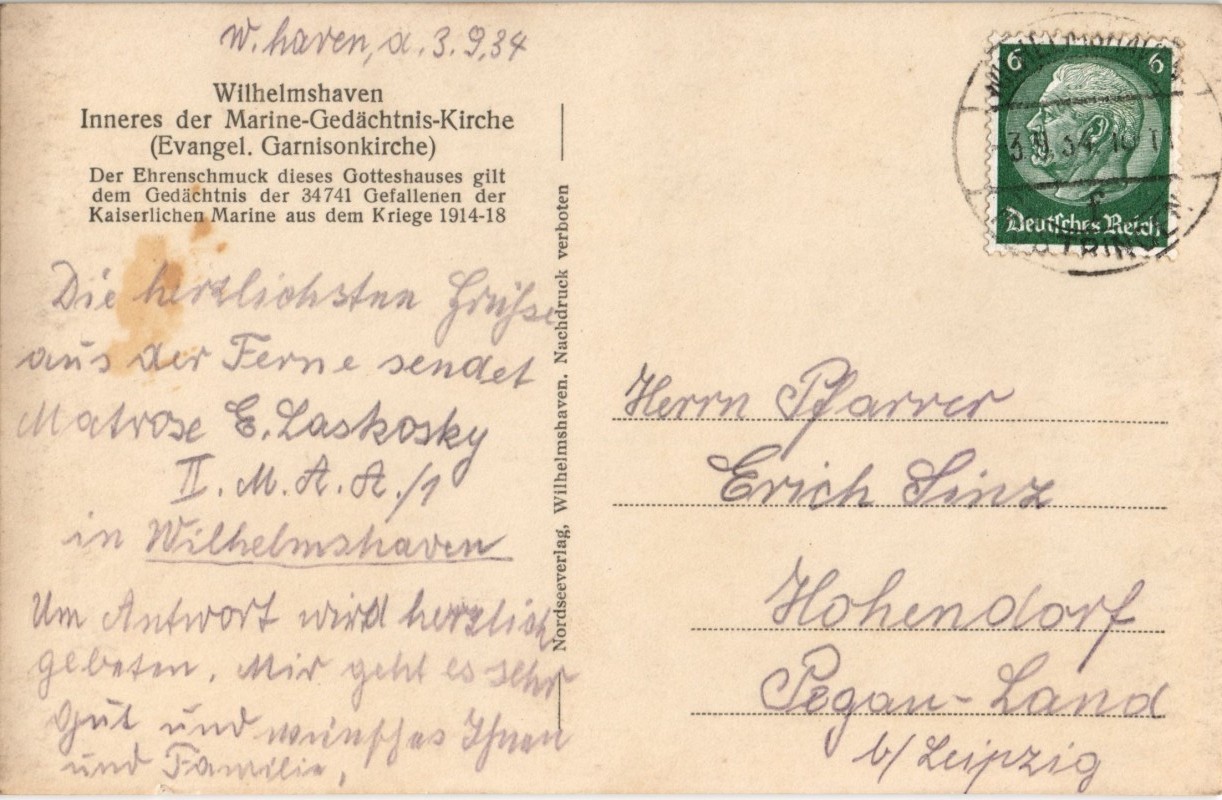 W. haven, d. 3.9.34
Wilhelmshaven
Inneres der Marine-Gedächtnis-Kirche
(Evangel. Garnisonkirche)
Der Ehrenschmuck dieses Gotteshauses gilt
dem Gedächtnis der 34741 Gefallenen der
Kaiserlichen Marine aus dem Kriege 1914-18
Die herzlichsten Grüße
aus der Ferne sendet
Matrose E. Laskosky
II. M. A. A./1
in Wilhelmshaven
Um Antwort wird herzlich
gebeten. Mir geht es sehr
gut und wünsch es Ihnen
und Familie.
Nordseeverlag, Wilhelmshaven. Nachdruck verboten
6 6
Deutsches Reich
34
Herrn Pfarrer
Erich Sinz
Hohendorf
Pegau-Land
b/Leipzig